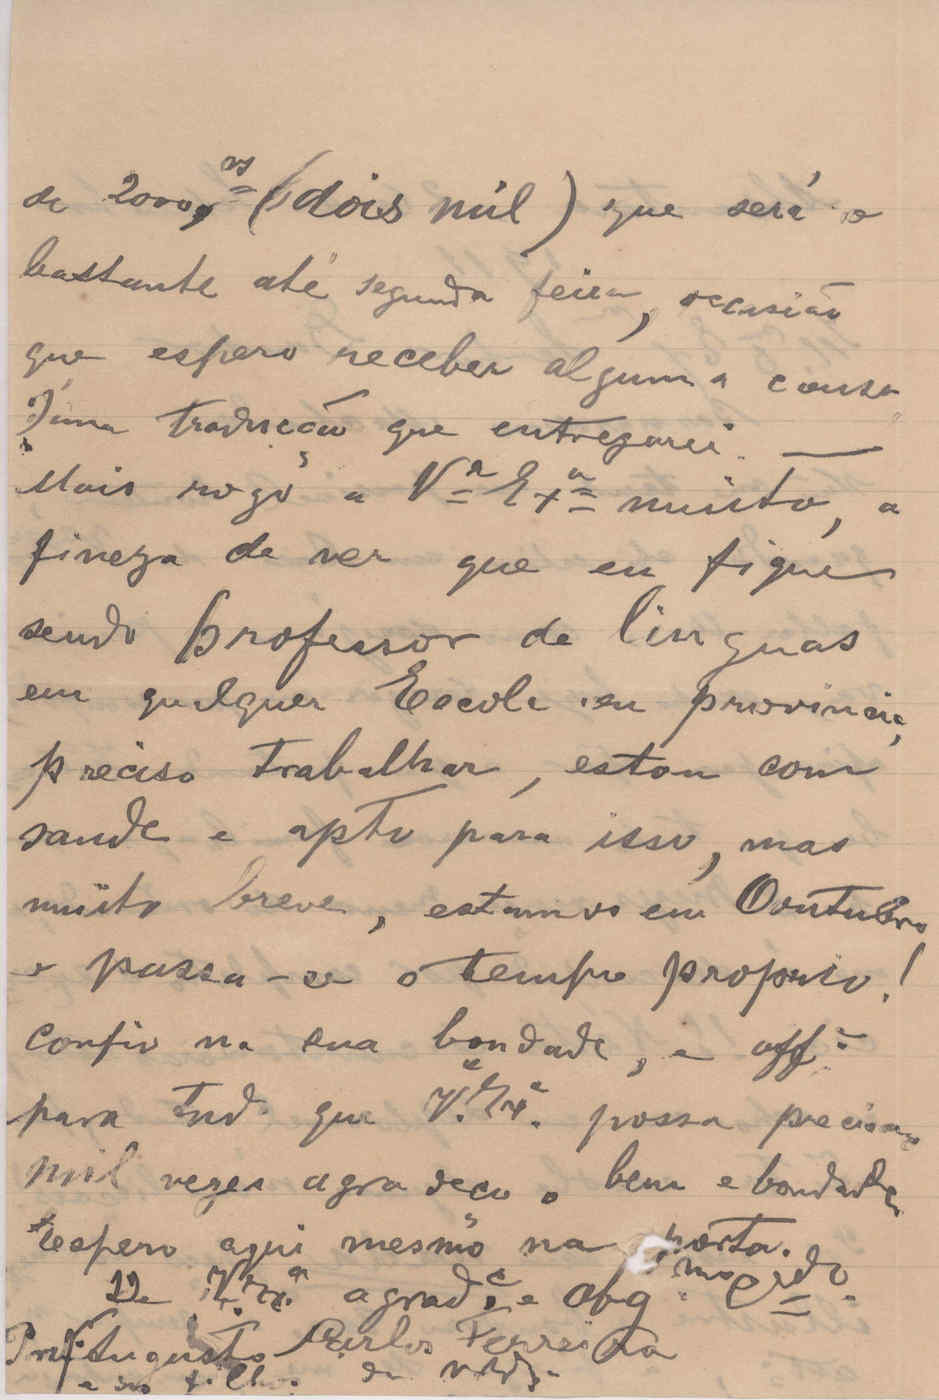 de 2000, rs (dois mil) que será o
bastante até segunda feira, occasião
que espero receber alguma cousa
d'uma traducção que entregarei. —
Mais rogo a Vª Exª muito, a
fineza de ver que eu fique
sendo professor de linguas
em qualquer Escola em provincia,
preciso trabalhar, estou com
saude e apto para isso, mas
muito breve, estamos em Outubro
e passa-se o tempo proprio!
Confio na sua bondade, e
para tudo que V. Exª. possa precisar
mil vezes agradeço o bem e bondade,
Espero aqui mesmo na porta.
De V. Exª agrad.e e obg.mo Crdo.
Prof. Augusto Carlos Ferreira
e seu filho.